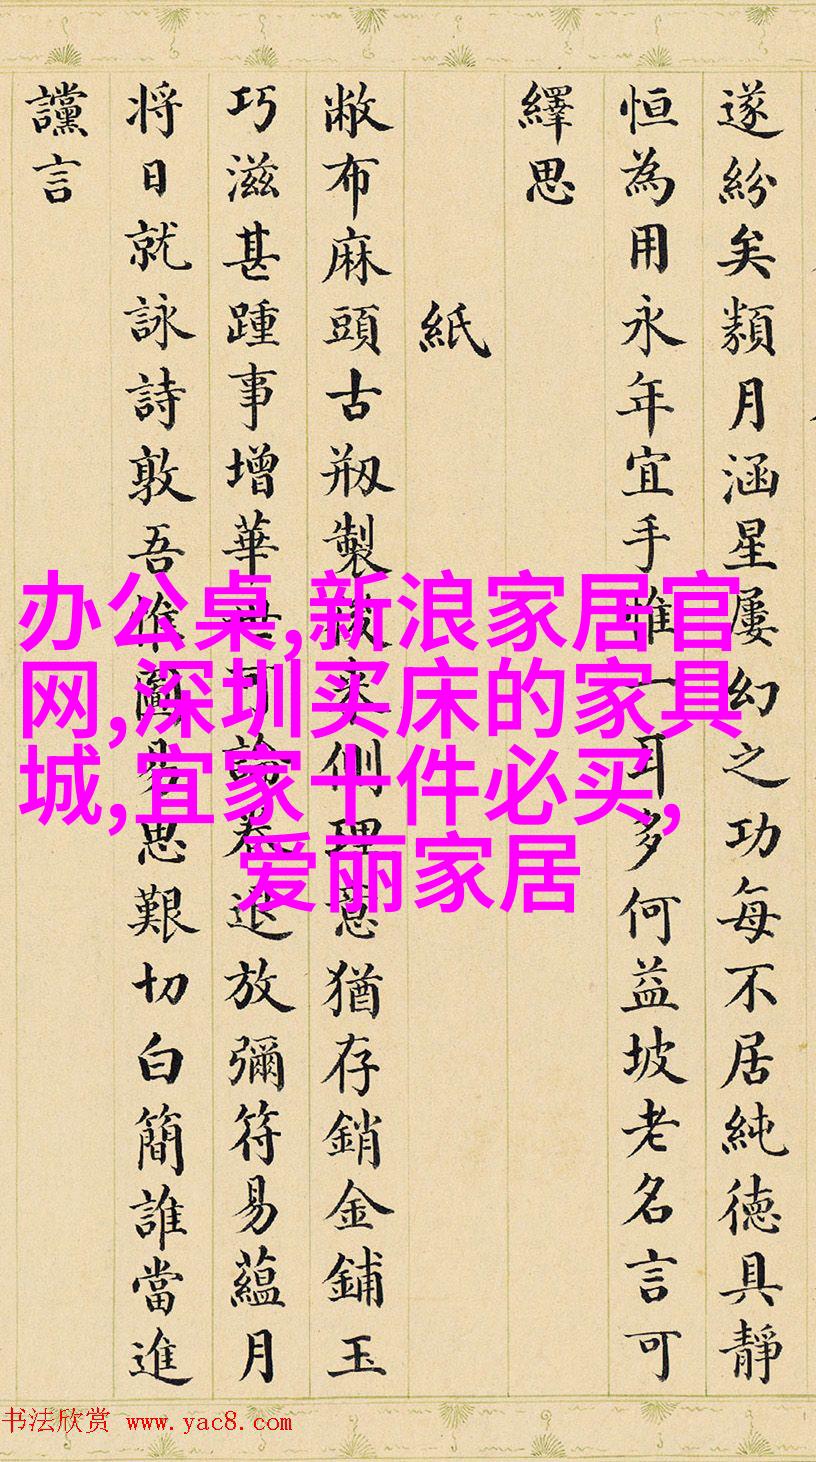 遂紛矣類月涵星屢幻之功每不居純德具靜
恒為用永年宜手惟一耳多何益坡老名言可
繹思
紙
敝布麻頭古剏製後來側理意猶存銷金鋪玉
巧滋甚踵事增華世可論卷退放彌符易蘊月
将日就詠詩敦吾惟圖易思艱切白簡誰當進
讜言
办公桌,新浪家居官
网,深圳买床的家具
城,宜家十件必买,
爱丽家居
书法欣赏 www.yac8.com